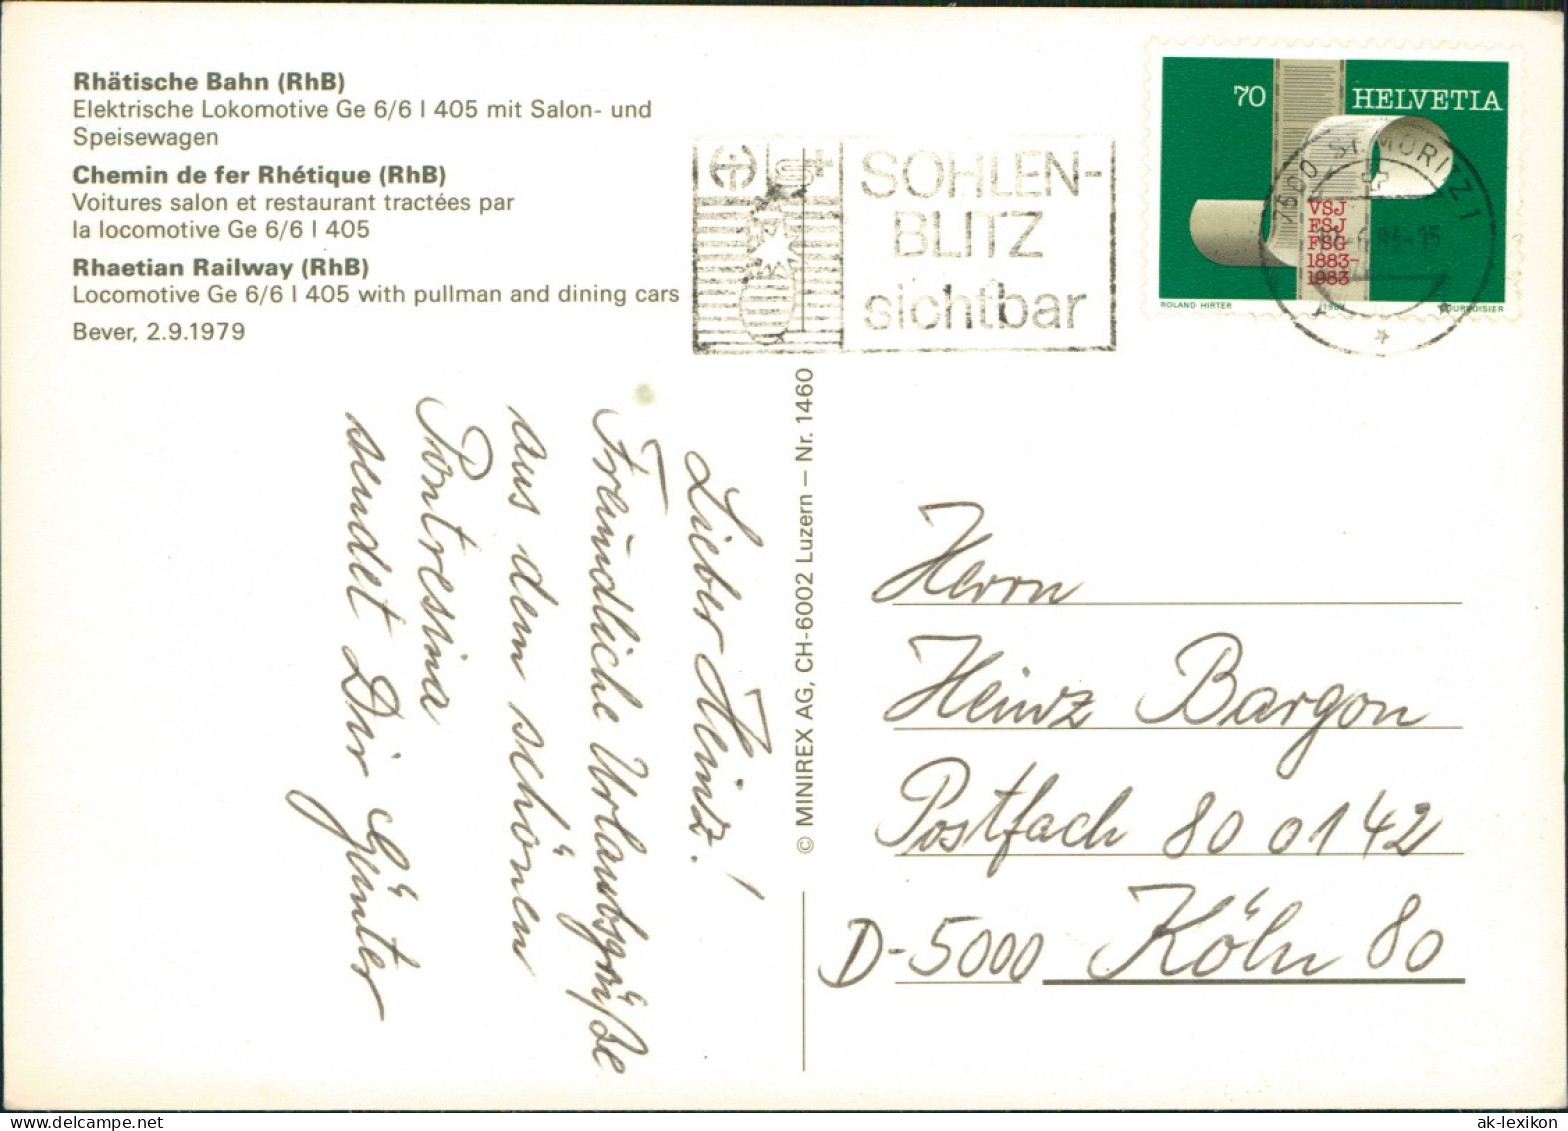 Rhätische Bahn (RhB)
Elektrische Lokomotive Ge 6/6 I 405 mit Salon- und
Speisewagen
Chemin de fer Rhétique (RhB)
Voitures salon et restaurant tractées par
la locomotive Ge 6/6 I 405
Rhaetian Railway (RhB)
Locomotive Ge 6/6 I 405 with pullman and dining cars
Bever, 2.9.1979
SOHLEN-
BLITZ
sichtbar
70 HELVETIA
VSJ
FSJ
FSG
1883-
1983
ROLAND HIRTER
COURVOISIER
7500 ST. MORITZ 1
Lieber Heinz!
Freundliche Urlaubsgrüße
aus dem schönen
Pontresina
sendet Dir Günter
© MINIREX AG, CH-6002 Luzern – Nr. 1460
Herrn
Heinz Bargon
Postfach 80 01 42
D-5000 Köln 80
ak-lexikon